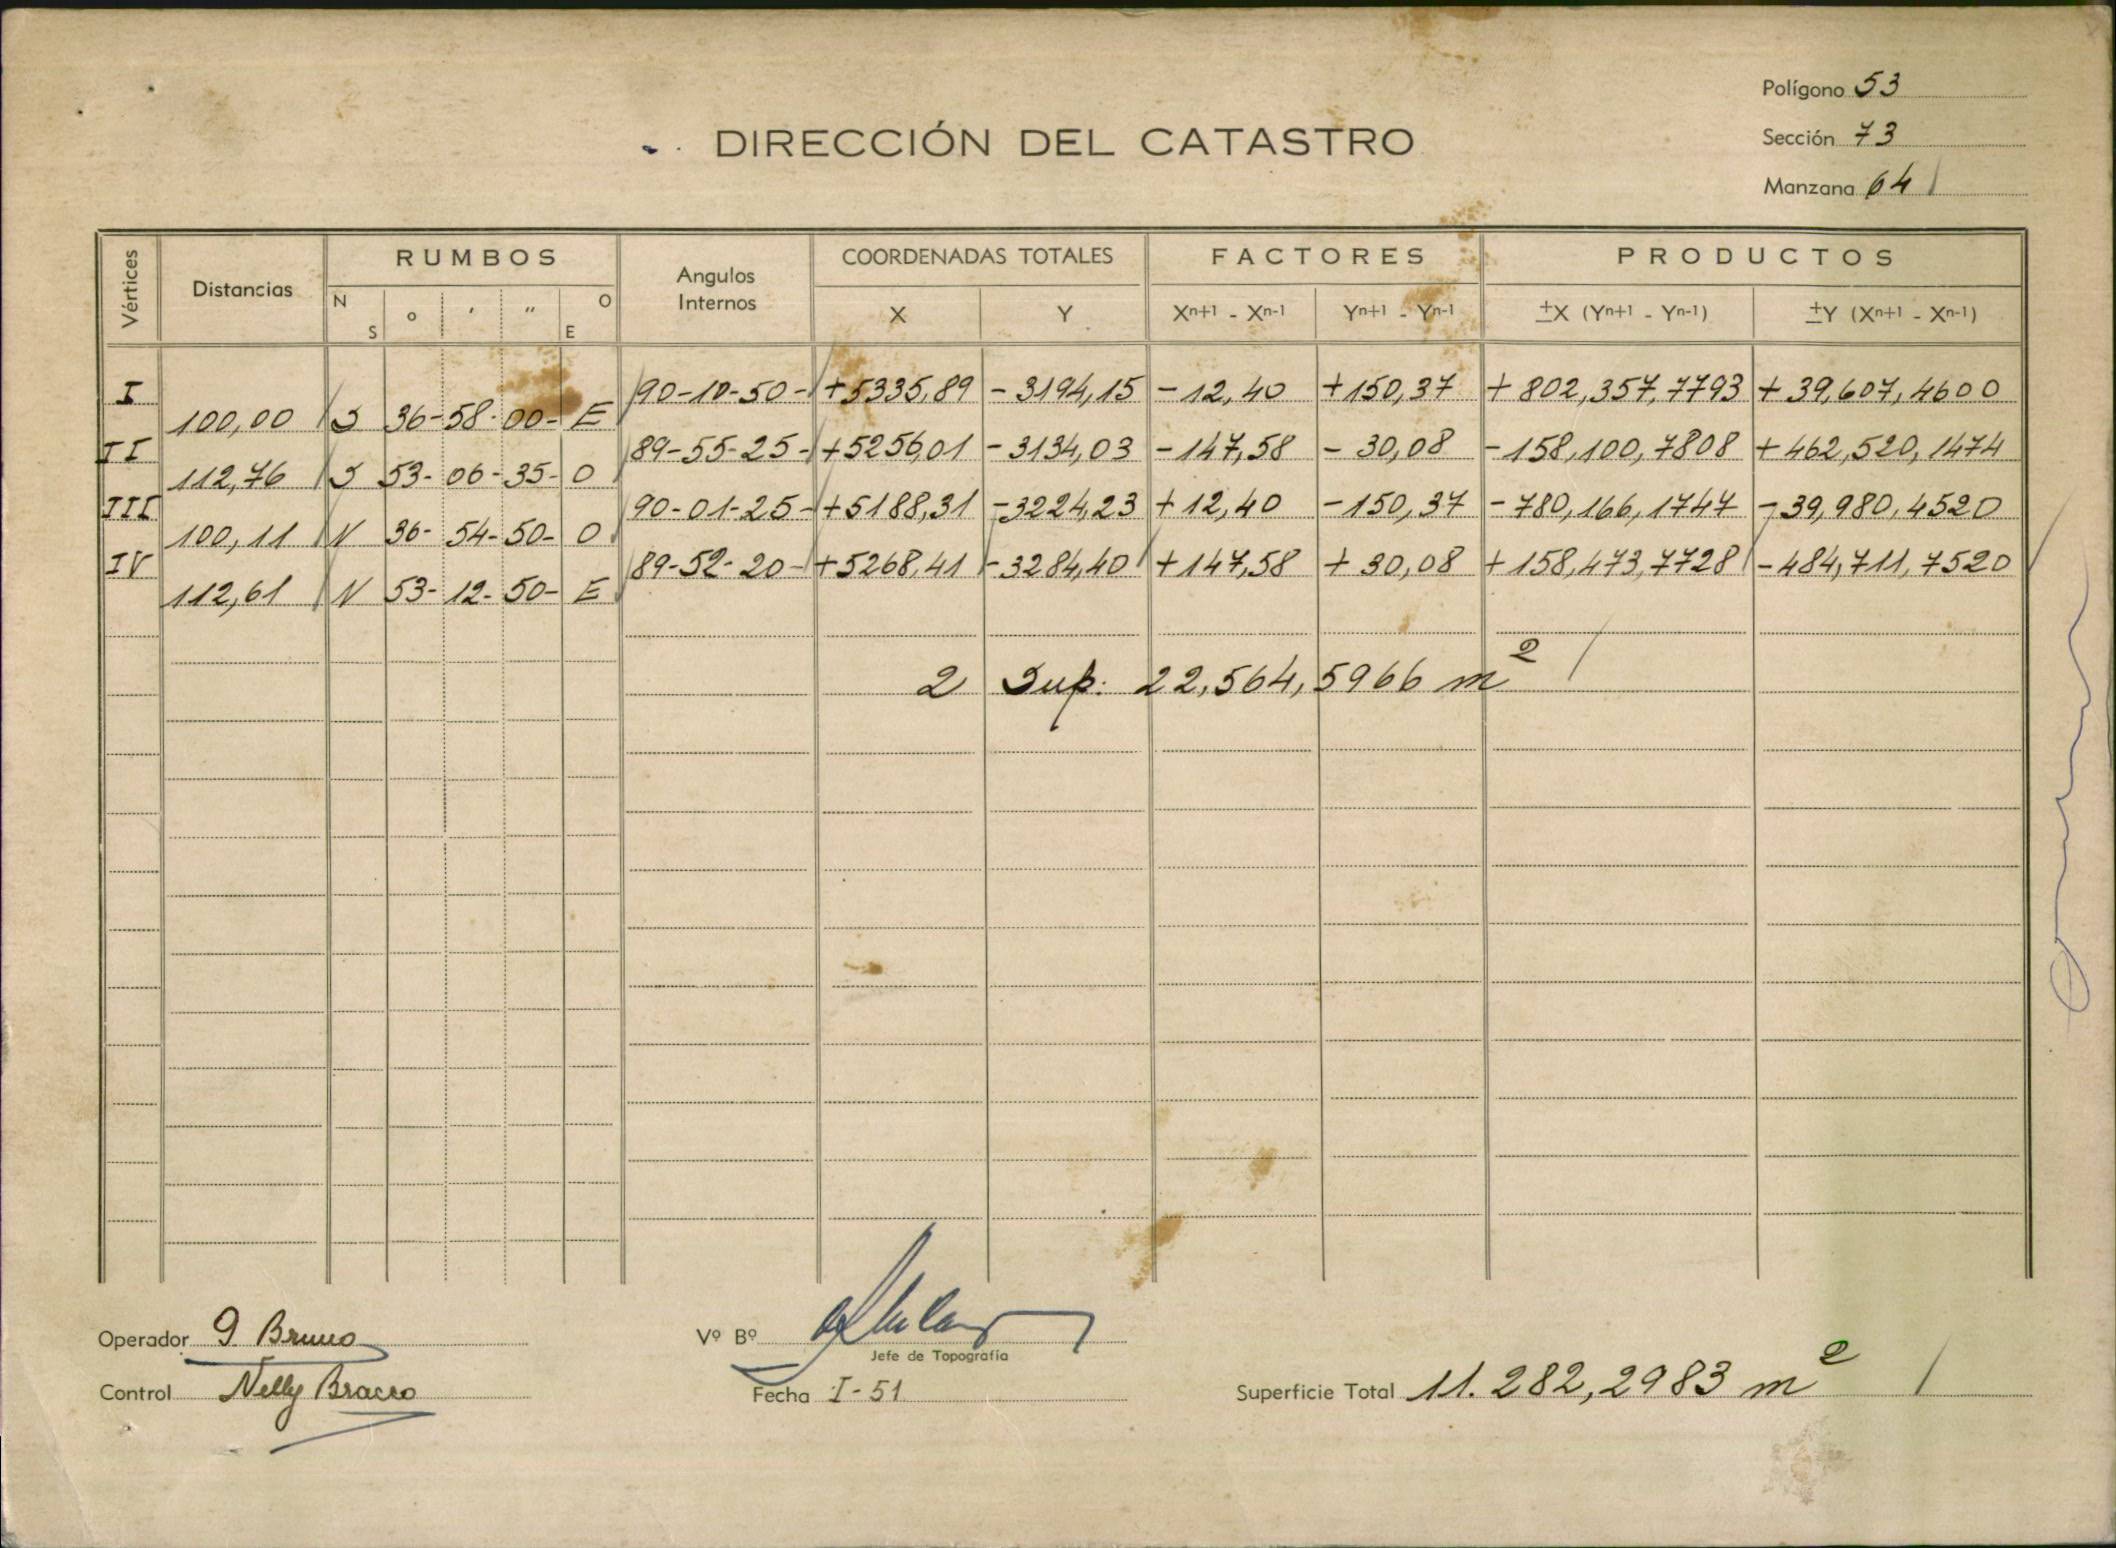 Polígono 53
DIRECCIÓN DEL CATASTRO
Sección 73
Manzana 64
Vértices Distancias RUMBOS Angulos Internos COORDENADAS TOTALES FACTORES PRODUCTOS
N S ° ' " O E X Y Xn+1 - Xn-1 Yn+1 - Yn-1 ±X (Yn+1 - Yn-1) ±Y (Xn+1 - Xn-1)
I 90-10-50- +5335,89 -3194,15 -12,40 +150,37 +802,357,7793 +39,607,4600
100,00 S 36-58-00- E
II 89-55-25- +5256,01 -3134,03 -147,58 -30,08 -158,100,7808 +462,520,1474
112,76 S 53-06-35- O
III 90-01-25- +5188,31 -3224,23 +12,40 -150,37 -780,166,1747 -39,980,4520
100,11 N 36-54-50- O
IV 89-52-20- +5268,41 -3284,40 +147,58 +30,08 +158,473,7728 -484,711,7520
112,61 N 53-12-50- E
2 Sup: 22,564,5966 m²
Operador G. Bruno
Vº Bº
Jefe de Topografía
Control Nelly Bracco
Fecha I-51
Superficie Total 11.282,2983 m²